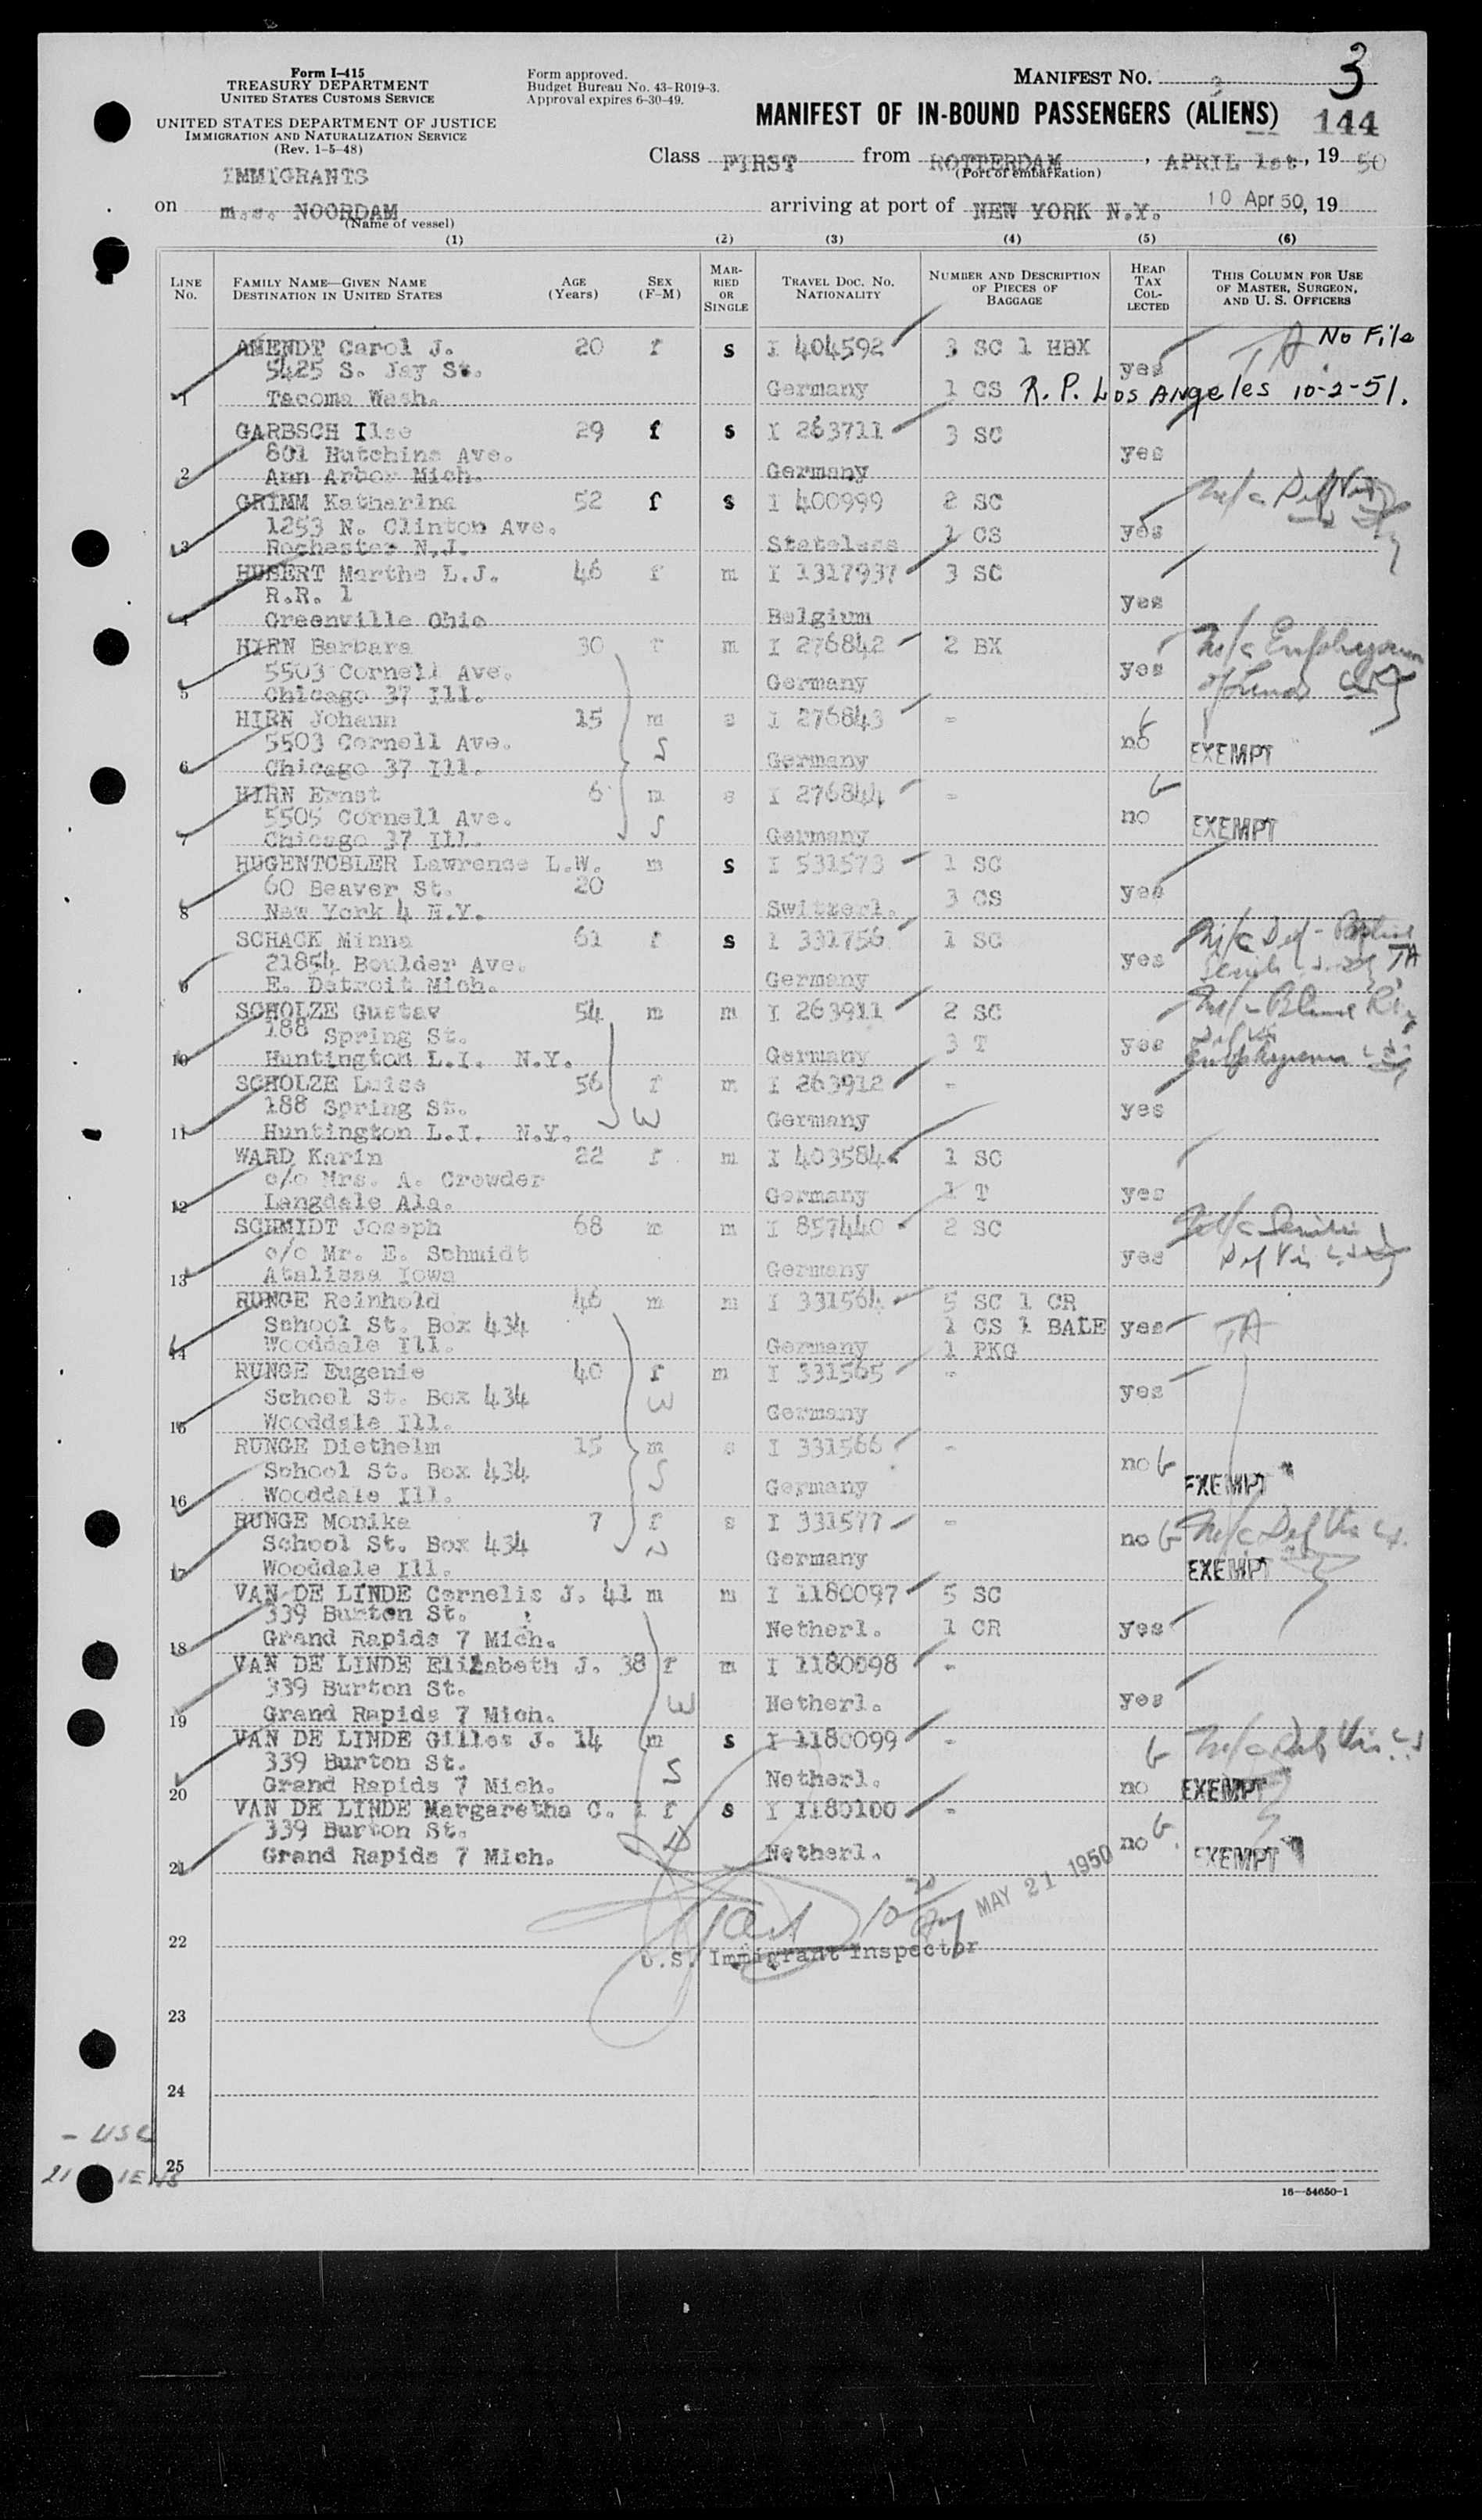 Form I-415
TREASURY DEPARTMENT
UNITED STATES CUSTOMS SERVICE
UNITED STATES DEPARTMENT OF JUSTICE
IMMIGRATION AND NATURALIZATION SERVICE
(Rev. 1-5-48)
Form approved.
Budget Bureau No. 43-R019-3.
Approval expires 6-30-49.
MANIFEST NO. 3
3
MANIFEST OF IN-BOUND PASSENGERS (ALIENS) 144
Class FIRST from ROTTERDAM, APRIL 1st, 19 50
(Port of embarkation)
IMMIGRANTS
on m.s. NOORDAM arriving at port of NEW YORK N.Y. 10 Apr 50, 19
(Name of vessel)
(1) (2) (3) (4) (5) (6)
LINE NO. FAMILY NAME—GIVEN NAME DESTINATION IN UNITED STATES AGE (Years) SEX (F-M) MARRIED OR SINGLE TRAVEL DOC. NO. NATIONALITY NUMBER AND DESCRIPTION OF PIECES OF BAGGAGE HEAD TAX COLLECTED THIS COLUMN FOR USE OF MASTER, SURGEON, AND U. S. OFFICERS
AMENDT Carol J. 20 f s I 404592 3 SC 1 HBX TA No File
5425 S. Jay St. yes
1 Tacoma Wash. Germany 1 CS R. P. Los Angeles 10-2-51.
GARBSCH Ilse 29 f s I 263711 3 SC
801 Hutchins Ave. yes
2 Ann Arbor Mich. Germany
GRIMM Katharina 52 f s I 400999 2 SC
1253 N. Clinton Ave. yes
3 Rochester N.J. Stateless 1 CS
HUBERT Marthe L.J. 46 f m I 1317937 3 SC
R.R. 1 yes
4 Greenville Ohio Belgium
HIRN Barbara 30 f m I 276842 2 BX
5503 Cornell Ave. yes
5 Chicago 37 Ill. Germany
HIRN Johann 15 m s I 276843 -
5503 Cornell Ave. S no EXEMPT
6 Chicago 37 Ill. Germany
HIRN Ernst 6 m s I 276844 -
5505 Cornell Ave. S no EXEMPT
7 Chicago 37 Ill. Germany
HUGENTOBLER Lawrence L.W. m s I 531573 1 SC
60 Beaver St. 20 3 CS yes
8 New York 4 N.Y. Switzerl.
SCHACK Minna 61 f s I 331756 1 SC
21854 Boulder Ave. yes TA
9 E. Detroit Mich. Germany
SCHOLZE Gustav 54 m m I 263911 2 SC
188 Spring St. 3 T yes
10 Huntington L.I. N.Y. Germany
SCHOLZE Luise 56 f m I 263912 -
188 Spring St. W yes
11 Huntington L.I. N.Y. Germany
WARD Karin 22 f m I 403584 1 SC
c/o Mrs. A. Crowder 1 T yes
12 Langdale Ala. Germany
SCHMIDT Joseph 68 m m I 857440 2 SC
c/o Mr. E. Schmidt yes
13 Atalissa Iowa Germany
RUNGE Reinhold 46 m m I 331564 5 SC 1 CR
School St. Box 434 1 CS 1 BALE yes TA
14 Wooddale Ill. Germany 1 PKG
RUNGE Eugenie 40 f m I 331565 -
School St. Box 434 W yes
15 Wooddale Ill. Germany
RUNGE Diethelm 15 m s I 331566 -
School St. Box 434 S no EXEMPT
16 Wooddale Ill. Germany
RUNGE Monika 7 f s I 331577 -
School St. Box 434 no
17 Wooddale Ill. Germany EXEMPT
VAN DE LINDE Cornelis J. 41 m m I 1180097 5 SC
339 Burton St. 1 CR yes
18 Grand Rapids 7 Mich. Netherl.
VAN DE LINDE Elizabeth J. 38 f m I 1180098 -
339 Burton St. W yes
19 Grand Rapids 7 Mich. Netherl.
VAN DE LINDE Gilles J. 14 m s I 1180099 -
339 Burton St. S no EXEMPT
20 Grand Rapids 7 Mich. Netherl.
VAN DE LINDE Margaretha C. 1 f s I 1180100 -
339 Burton St. D no
21 Grand Rapids 7 Mich. Netherl. EXEMPT
MAY 21 1950
22 U.S. Immigrant Inspector
23
24
- USC
25
16—54650-1